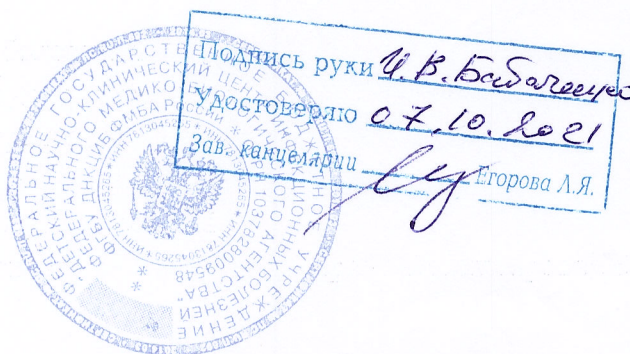 Подпись руки И.В. Бабаченко
Удостоверяю 07.10.2021
Зав. канцелярии Егорова Л.Я.
ФЕДЕРАЛЬНОЕ ГОСУДАРСТВЕННОЕ БЮДЖЕТНОЕ УЧРЕЖДЕНИЕ
ДЕТСКИЙ НАУЧНО-КЛИНИЧЕСКИЙ ЦЕНТР ИНФЕКЦИОННЫХ БОЛЕЗНЕЙ
ФЕДЕРАЛЬНОГО МЕДИКО-БИОЛОГИЧЕСКОГО АГЕНТСТВА"
ФБУ ДНКЦИБ ФМБА РОССИИ * 1037828008548